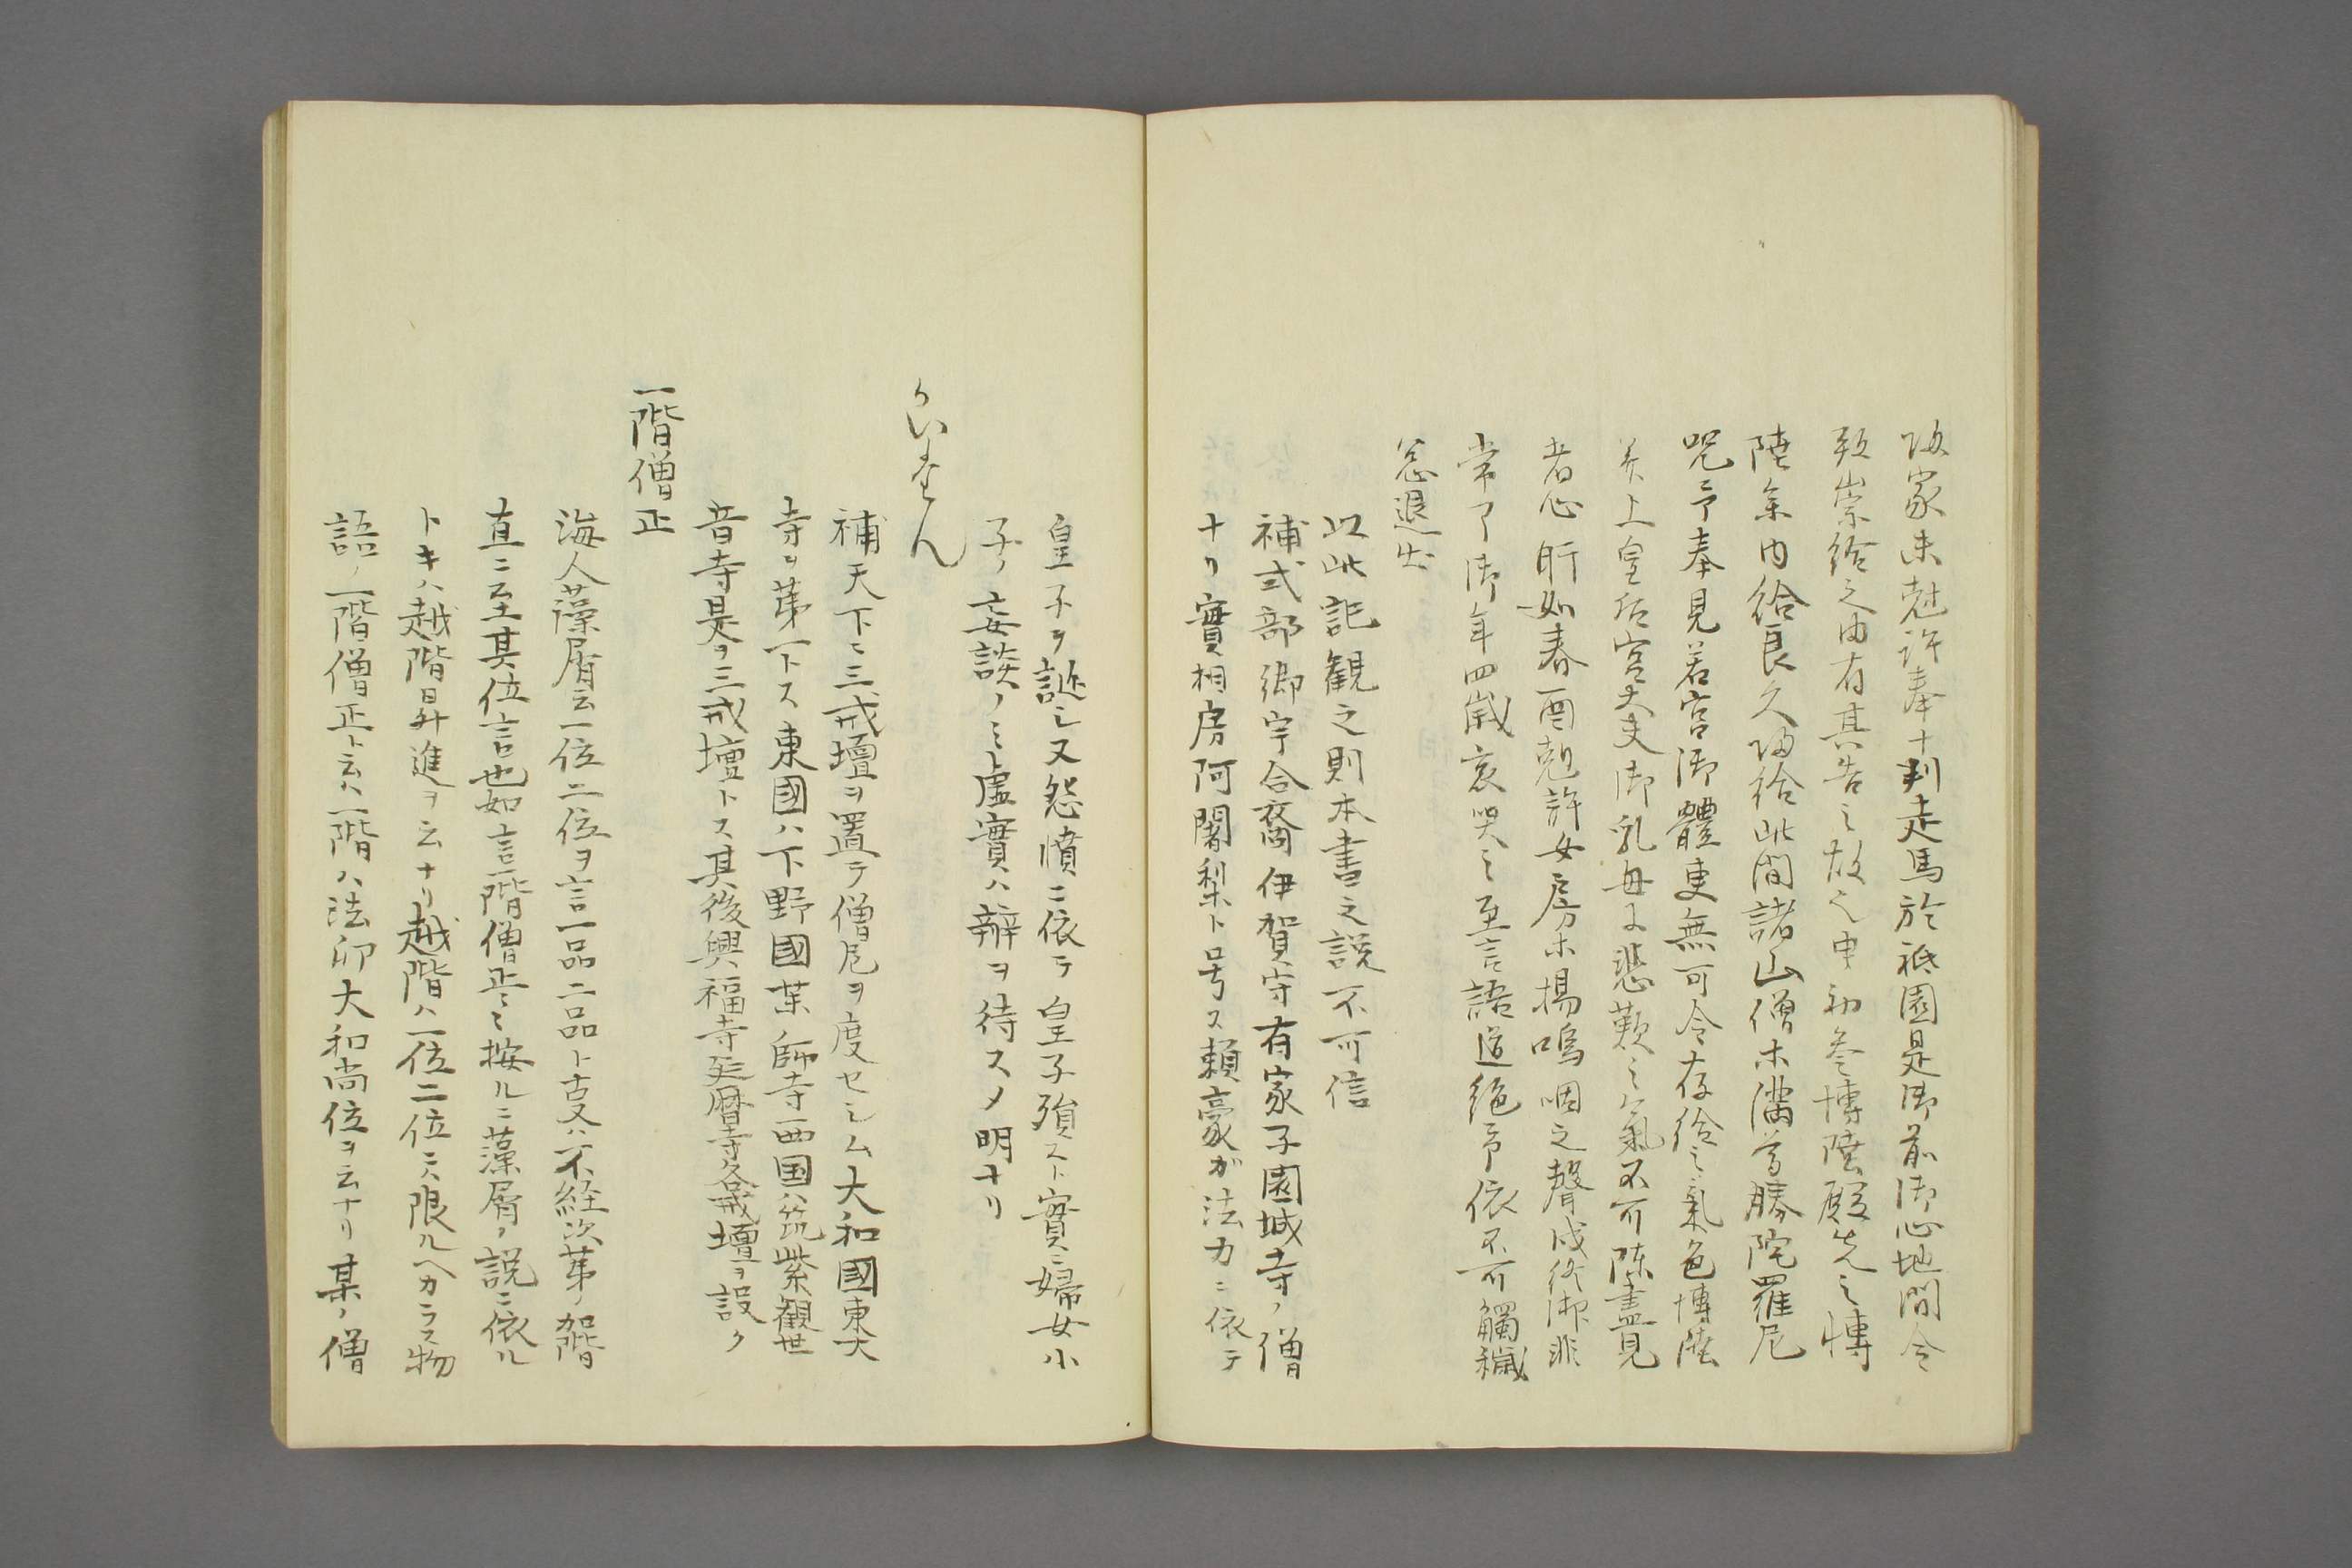 皈家未剋許奉十列走馬於祇園是御前御心地間令
致崇給之由有其告之故也申初参博陸殿先之博
陸参内給良久皈給此間諸山僧木満尊勝陀羅尼
呪予奉見若宮御體更無可令存給之氣色博陸
并上皇后宮大夫御乳母等悲歎之氣不可陳盡見
者心肝如春酉剋許女房木揚嗚咽之聲成終御非
常了御年四歳哀哭之至言語道絶予依不可觸穢
怱退出
以此記観之則本書之説不可信
補式部卿宇合裔伊賀守有家子園城寺ノ僧
ナリ實相房阿闍梨ト号ス頼豪ガ法力ニ依テ
皇子ヲ誕シ又怨憤ニ依テ皇子殞スト實ニ婦女小
子ノ妄談ノミ虚實ハ辯ヲ待スメ明ナリ
かいたん
補天下ニ三戒壇ヲ置テ僧尼ヲ度セシム大和國東大
寺ヲ第一トス東國ハ下野國薬師寺西国ハ筑紫觀世
音寺是ヲ三戒壇トス其後興福寺延暦寺各戒壇ヲ設ク
一階僧正
海人藻屑云一位二位ヲ言一品二品ト古又ハ不経次第ノ階
直ニ至其位言也如言一階僧正ニ按ルニ藻屑ノ説ニ依ル
トキハ越階昇進ヲ云ナリ越階ハ一位二位ニ限ルヘカラス物
語ノ一階僧正ト云ハ一階ハ法印大和尚位ヲ云ナリ某ノ僧